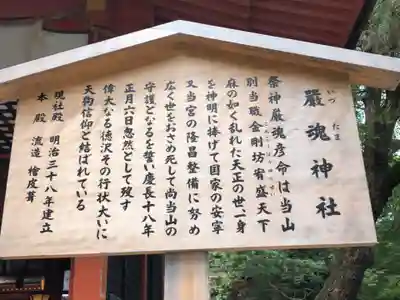 嚴魂神社
いづ
たま
祭神嚴魂彦命は当山
別当職金剛坊宥盛天下
麻の如く乱れた天正の世一身
を神明に捧げて国家の安寧
又当宮の隆昌整備に努め
広く世をおさめ死して尚当山の
守護となるを誓い慶長十八年
正月六日忽然として歿す
偉大なる徳沢その行状大いに
天狗信仰と結ばれている
現社殿 明治三十八年建立
本殿 流造 檜皮葺